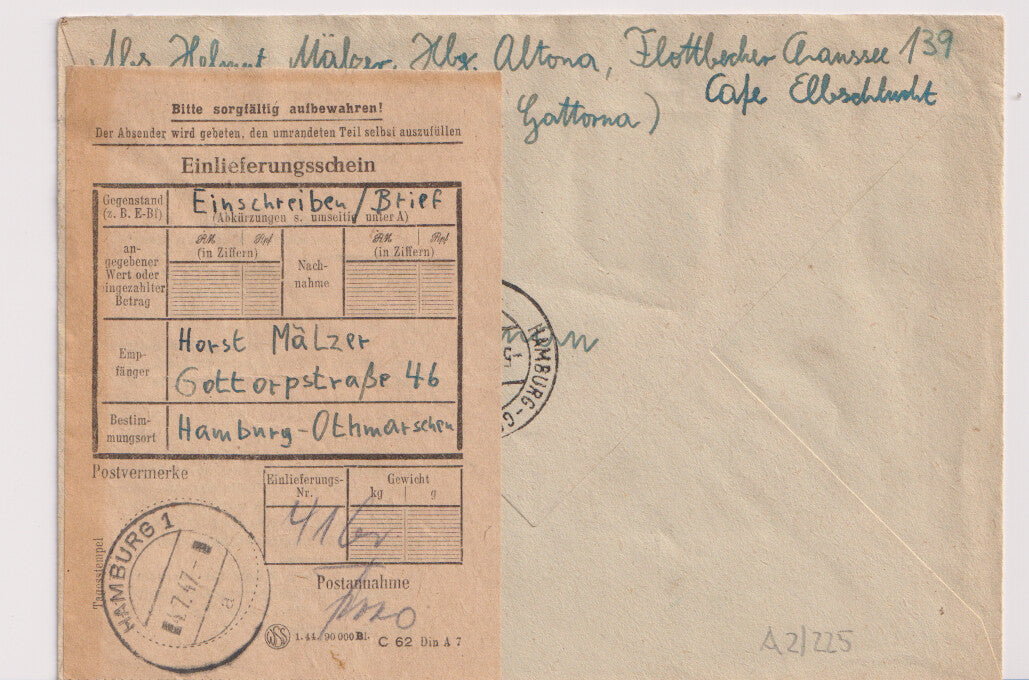 Abs. Helmut Mälzer, Hbg. Altona, Flottbecher Chaussee 139
Cafe Elbschlucht
Gattorna)
Bitte sorgfältig aufbewahren!
Der Absender wird gebeten, den umrandeten Teil selbst auszufüllen
Einlieferungsschein
Gegenstand
(z. B. E-Bf)
Einschreiben/Brief
(Abkürzungen s. umseitig unter A)
an-
gegebener
Wert oder
eingezahlter
Betrag
RM Rpf
(in Ziffern)
Nach-
nahme
RM Rpf
(in Ziffern)
Emp-
fänger
Horst Mälzer
Gottorpstraße 46
Bestim-
mungsort
Hamburg-Othmarschen
Postvermerke
Einlieferungs-
Nr.
Gewicht
kg g
Tagesstempel
HAMBURG 1
4.7.47.-
a
Postannahme
1.44. 90 000 Bl. C 62 Din A 7
HAMBURG-G
A2/225